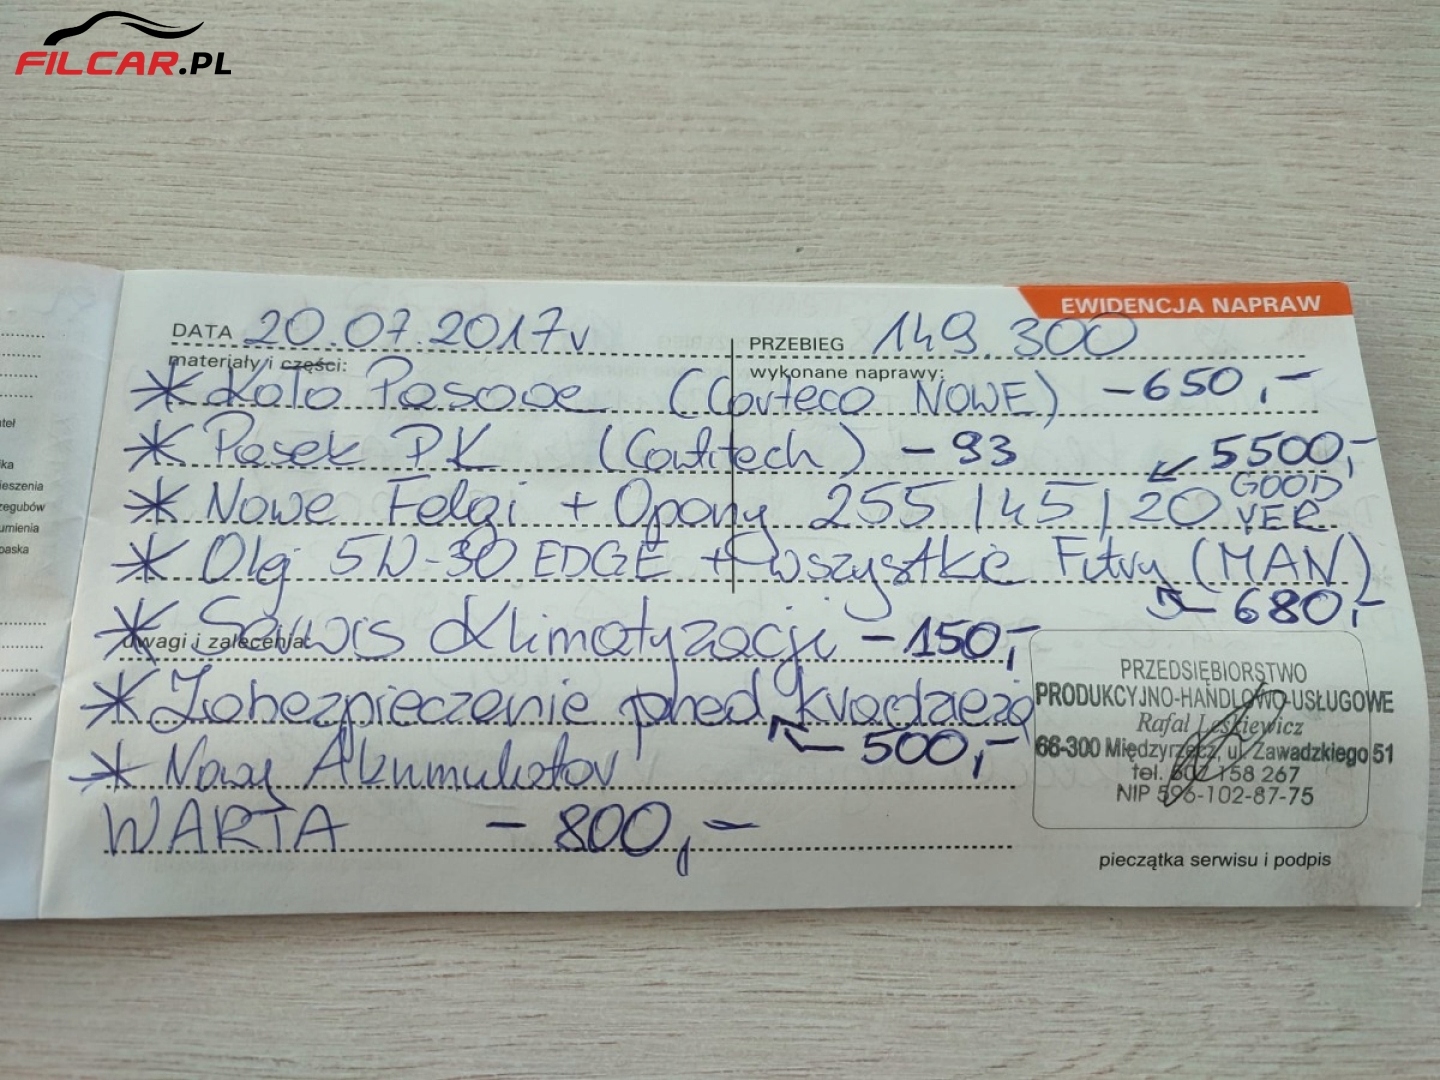 FILCAR.PL
EWIDENCJA NAPRAW
DATA 20.07.2017r PRZEBIEG 149.300
materiały i części: wykonane naprawy:
* Koło Pasowe (Corteco NOWE) - 650,-
* Pasek PK (Contitech) - 93
5500,-
* Nowe Felgi + Opony 255/45/20 GOOD
YER
* Olej 5W-30 EDGE + wszystkie Fitry (MAN)
680,-
uwagi i zalecenia:
* Serwis Klimatyzacji - 150,-
* Zabezpieczenie przed kradzieżą
500,-
* Nowy Akumulator
WARTA - 800,-
PRZEDSIĘBIORSTWO
PRODUKCYJNO-HANDLOWO-USŁUGOWE
Rafał Leśkiewicz
66-300 Międzyrzecz, ul. Zawadzkiego 51
tel. 607 158 267
NIP 596-102-87-75
pieczątka serwisu i podpis
tel
ka
ieszenia
zegubów
umienia
paska